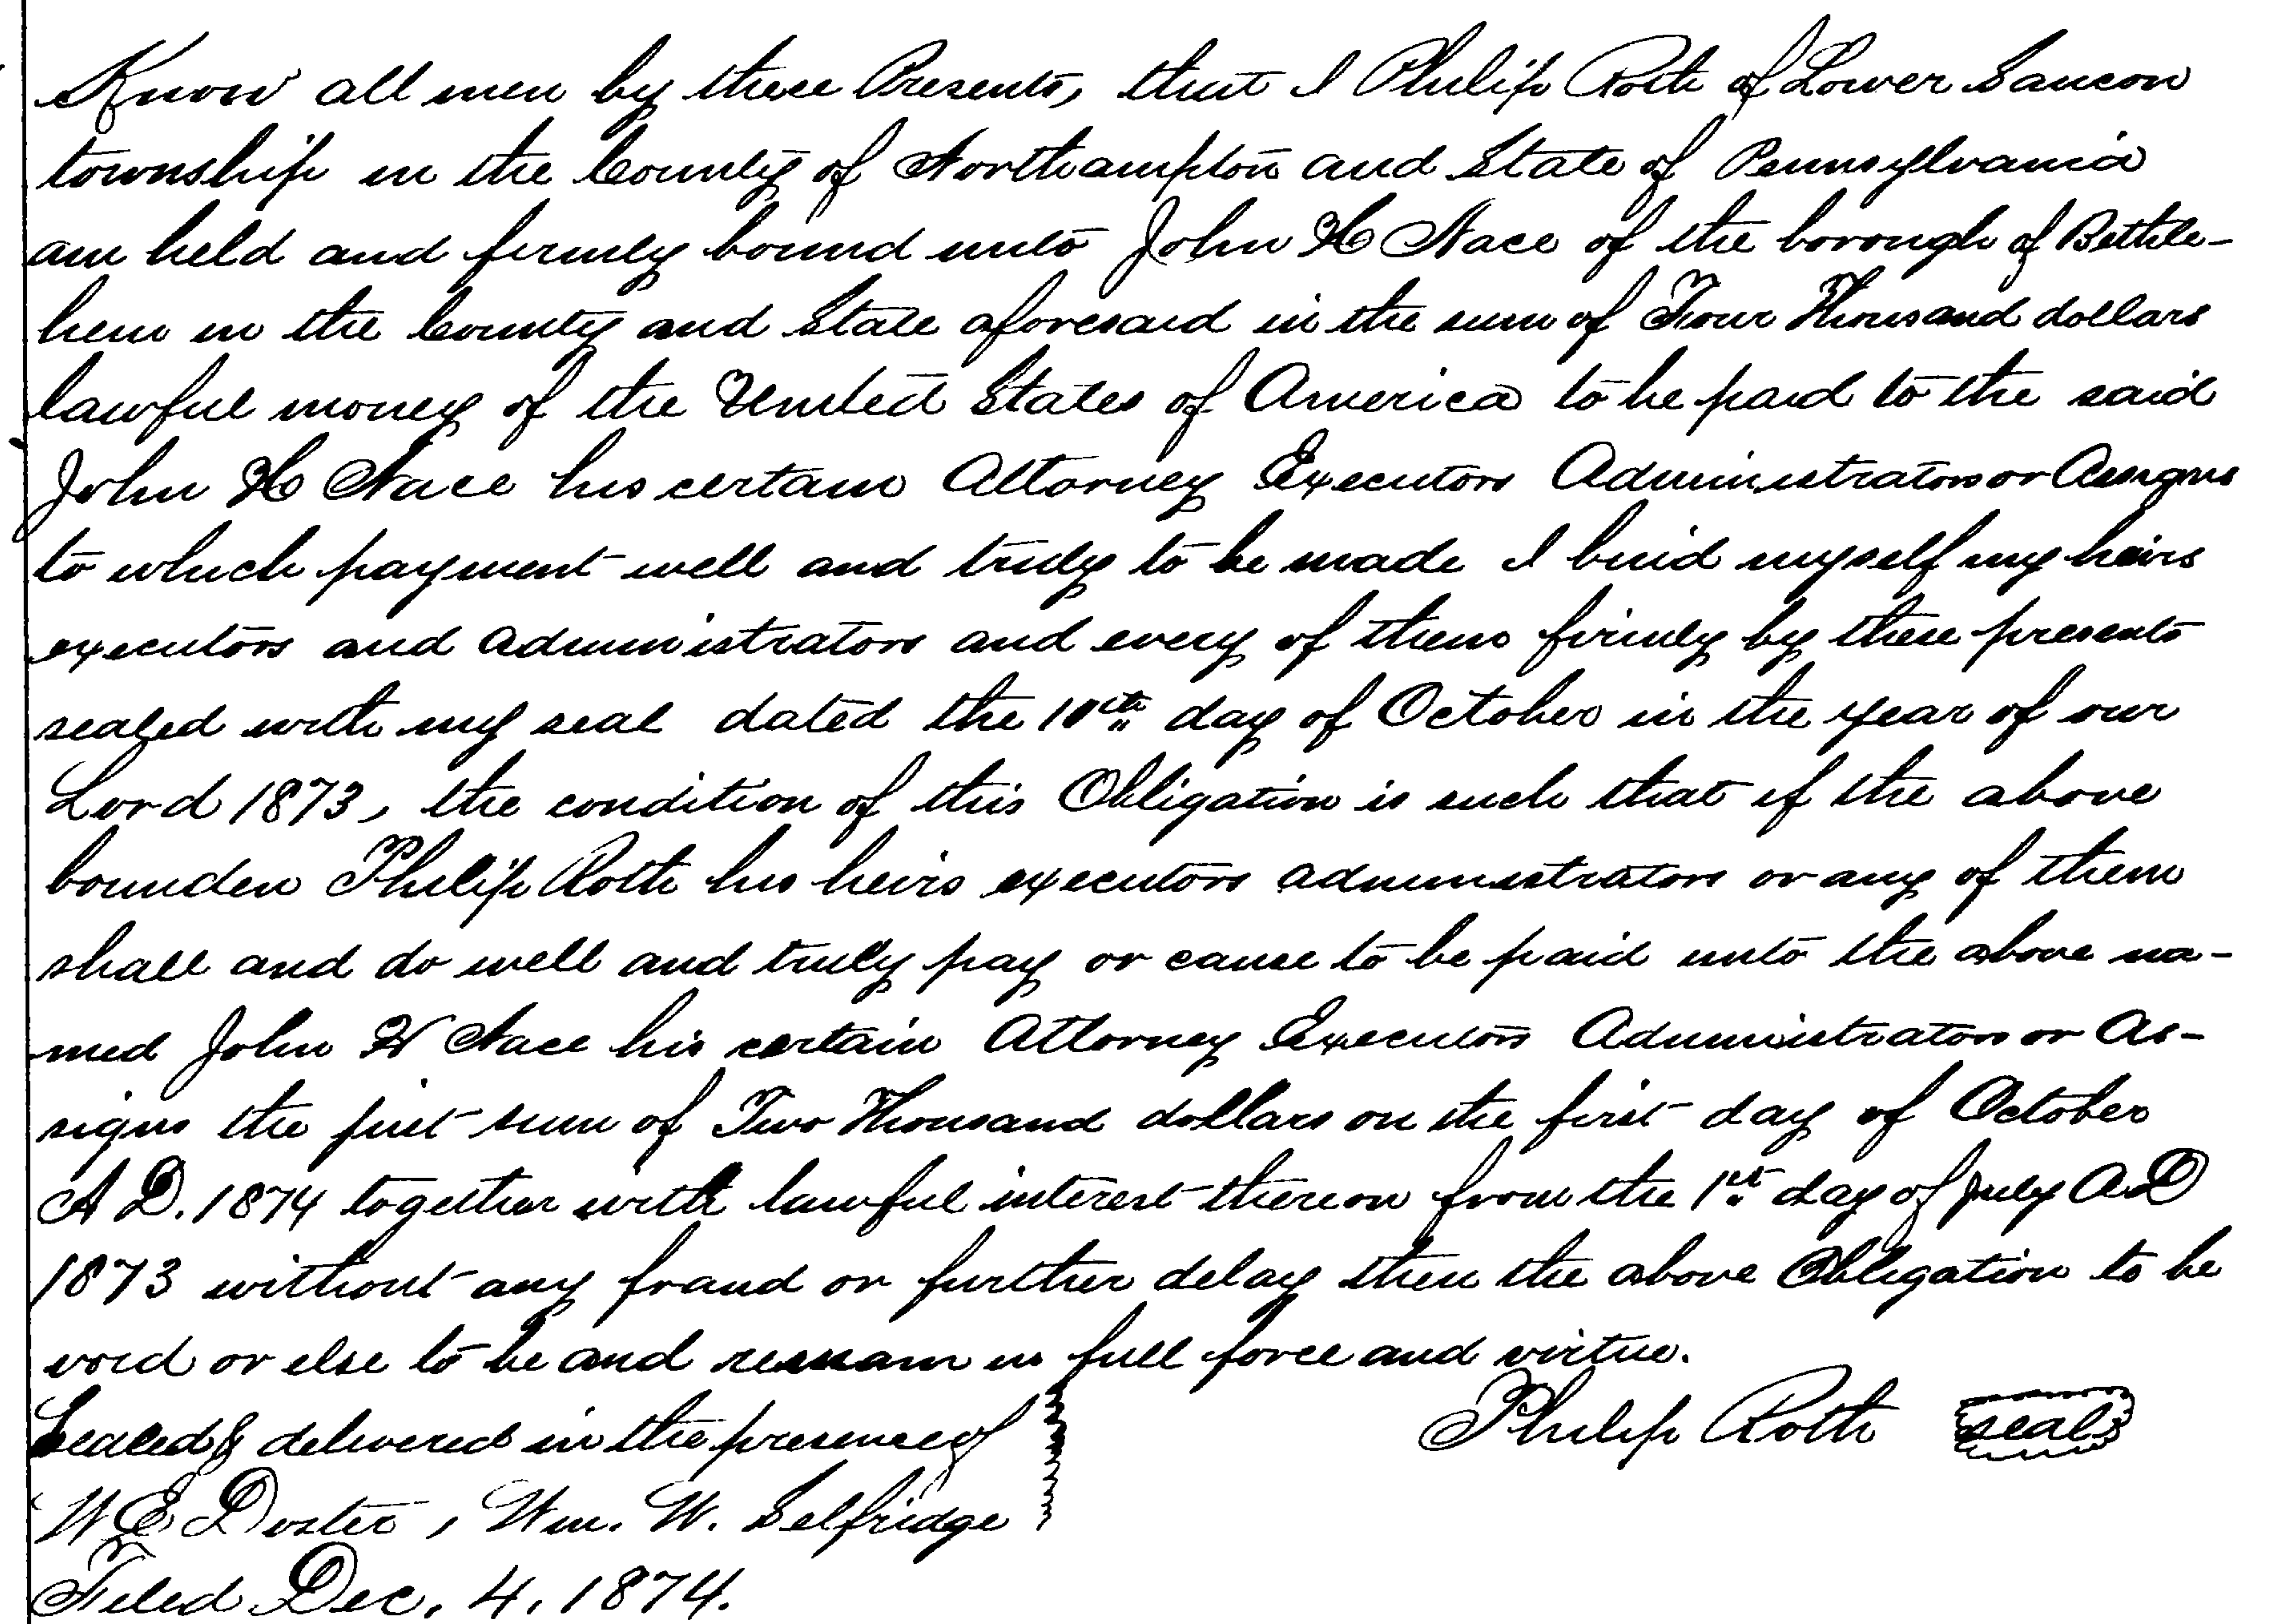 Know all men by these Presents, that I Philip Roth of Lower Saucon
township in the County of Northampton and State of Pennsylvania
am held and firmly bound unto John H Nace of the borough of Bethle-
hem in the County and State aforesaid in the sum of Four Thousand dollars
lawful money of the United States of America to be paid to the said
John H Nace his certain Attorney Executors Administrators or Assigns
to which payment well and truly to be made I bind myself my heirs
executors and administrators and every of them firmly by these presents
sealed with my seal dated the 10th day of October in the year of our
Lord 1873, the condition of this Obligation is such that if the above
bounden Philip Roth his heirs executors administrators or any of them
shall and do well and truly pay or cause to be paid unto the above na-
med John H Nace his certain Attorney Executors Administrators or As-
signs the just sum of Two Thousand dollars on the first day of October
A D. 1874 together with lawful interest thereon from the 1st day of July A.D
1873 without any fraud or further delay then the above Obligation to be
void or else to be and remain in full force and virtue.
Sealed & delivered in the presence of
Philip Roth seal
W E Doster, Wm. W. Selfridge
Filed Dec. 4, 1874.